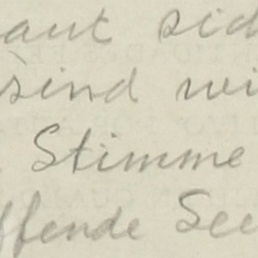 aut sid
sind wi
Stimme
ffende See